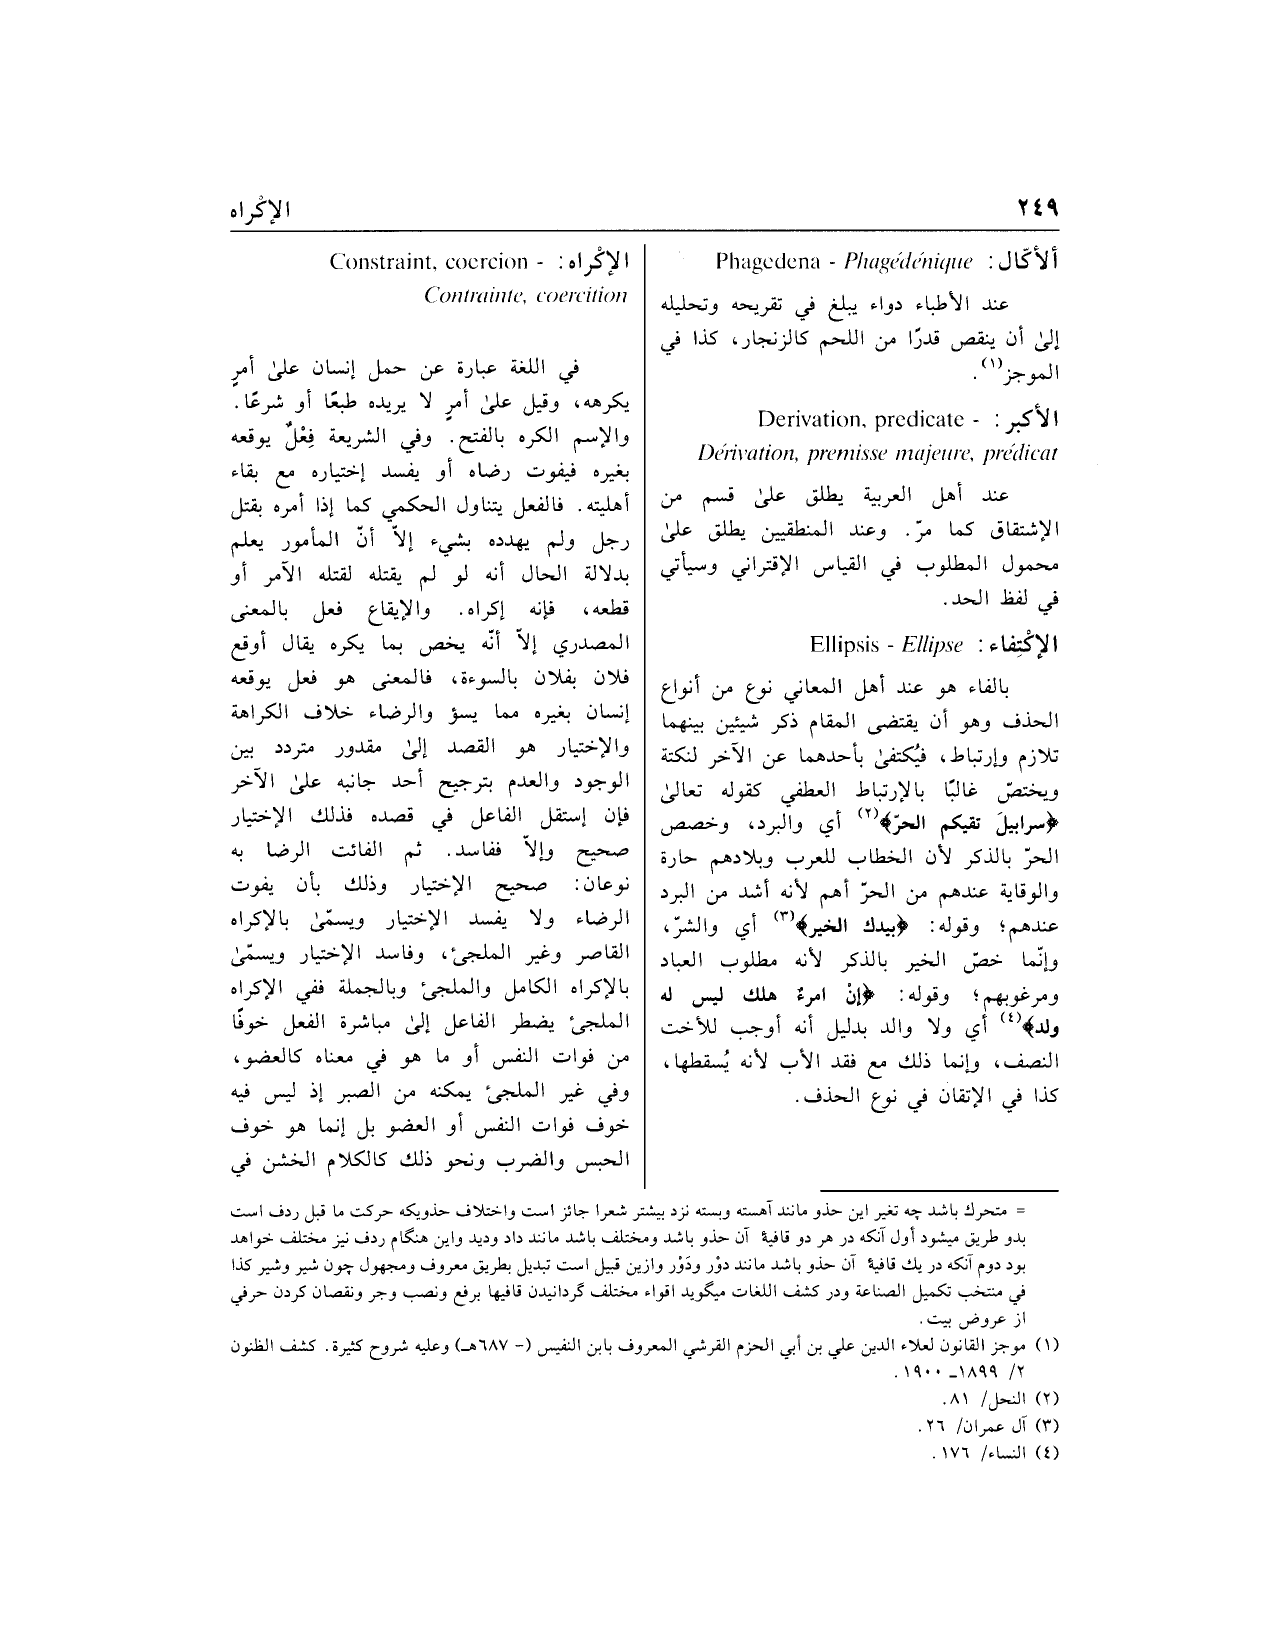 ٢٤٩
الإكْراه
ألأكّال: Phagedena - Phagédénique
عند الأطباء دواء يبلغ في تقريحه وتحليله
إلىٰ أن ينقص قدرًا من اللحم كالزنجار، كذا في
الموجز(١).
الأكبر: Derivation, predicate -
Dérivation, premisse majeure, prédicat
عند أهل العربية يطلق علىٰ قسم من
الإشتقاق كما مرّ. وعند المنطقيين يطلق علىٰ
محمول المطلوب في القياس الإقتراني وسيأتي
في لفظ الحد.
الإكْتِفاء: Ellipsis - Ellipse
بالفاء هو عند أهل المعاني نوع من أنواع
الحذف وهو أن يقتضى المقام ذكر شيئين بينهما
تلازم وإرتباط، فيُكتفىٰ بأحدهما عن الآخر لنكتة
ويختصّ غالبًا بالإرتباط العطفي كقوله تعالىٰ
﴿سرابيلَ تقيكم الحرّ﴾(٢) أي والبرد، وخصص
الحرّ بالذكر لأن الخطاب للعرب وبلادهم حارة
والوقاية عندهم من الحرّ أهم لأنه أشد من البرد
عندهم؛ وقوله: ﴿بيدك الخير﴾(٣) أي والشرّ،
وإنّما خصّ الخير بالذكر لأنه مطلوب العباد
ومرغوبهم؛ وقوله: ﴿إنْ امرءٌ هلك ليس له
ولد﴾(٤) أي ولا والد بدليل أنه أوجب للأخت
النصف، وإنما ذلك مع فقد الأب لأنه يُسقطها،
كذا في الإتقان في نوع الحذف.
الإكْراه: Constraint, coercion -
Contrainte, coercition
في اللغة عبارة عن حمل إنسان علىٰ أمرٍ
يكرهه، وقيل علىٰ أمرٍ لا يريده طبعًا أو شرعًا.
والإسم الكره بالفتح. وفي الشريعة فِعْلٌ يوقعه
بغيره فيفوت رضاه أو يفسد إختياره مع بقاء
أهليته. فالفعل يتناول الحكمي كما إذا أمره بقتل
رجل ولم يهدده بشيء إلاّ أنّ المأمور يعلم
بدلالة الحال أنه لو لم يقتله لقتله الآمر أو
قطعه، فإنه إكراه. والإيقاع فعل بالمعنى
المصدري إلاّ أنّه يخص بما يكره يقال أوقع
فلان بفلان بالسوءة، فالمعنى هو فعل يوقعه
إنسان بغيره مما يسؤ والرضاء خلاف الكراهة
والإختيار هو القصد إلىٰ مقدور متردد بين
الوجود والعدم بترجيح أحد جانبه علىٰ الآخر
فإن إستقل الفاعل في قصده فذلك الإختيار
صحيح وإلاّ ففاسد. ثم الفائت الرضا به
نوعان: صحيح الإختيار وذلك بأن يفوت
الرضاء ولا يفسد الإختيار ويسمّىٰ بالإكراه
القاصر وغير الملجئ، وفاسد الإختيار ويسمّىٰ
بالإكراه الكامل والملجئ وبالجملة ففي الإكراه
الملجئ يضطر الفاعل إلىٰ مباشرة الفعل خوفًا
من فوات النفس أو ما هو في معناه كالعضو،
وفي غير الملجئ يمكنه من الصبر إذ ليس فيه
خوف فوات النفس أو العضو بل إنما هو خوف
الحبس والضرب ونحو ذلك كالكلام الخشن في
= متحرك باشد چه تغير اين حذو مانند آهسته وبسته نزد بيشتر شعرا جائز است واختلاف حذويكه حركت ما قبل ردف است
بدو طريق ميشود أول آنكه در هر دو قافيۀ آن حذو باشد ومختلف باشد مانند داد وديد واين هنگام ردف نيز مختلف خواهد
بود دوم آنكه در يك قافيۀ آن حذو باشد مانند دوْر ودَوْر وازين قبيل است تبديل بطريق معروف ومجهول چون شير وشير كذا
في منتخب تكميل الصناعة ودر كشف اللغات ميگويد اقواء مختلف گردانيدن قافيها برفع ونصب وجر ونقصان كردن حرفي
از عروض بيت.
(١) موجز القانون لعلاء الدين علي بن أبي الحزم القرشي المعروف بابن النفيس (- ٦٨٧هـ) وعليه شروح كثيرة. كشف الظنون
٢/ ١٨٩٩ـ ١٩٠٠.
(٢) النحل/ ٨١.
(٣) آل عمران/ ٢٦.
(٤) النساء/ ١٧٦.